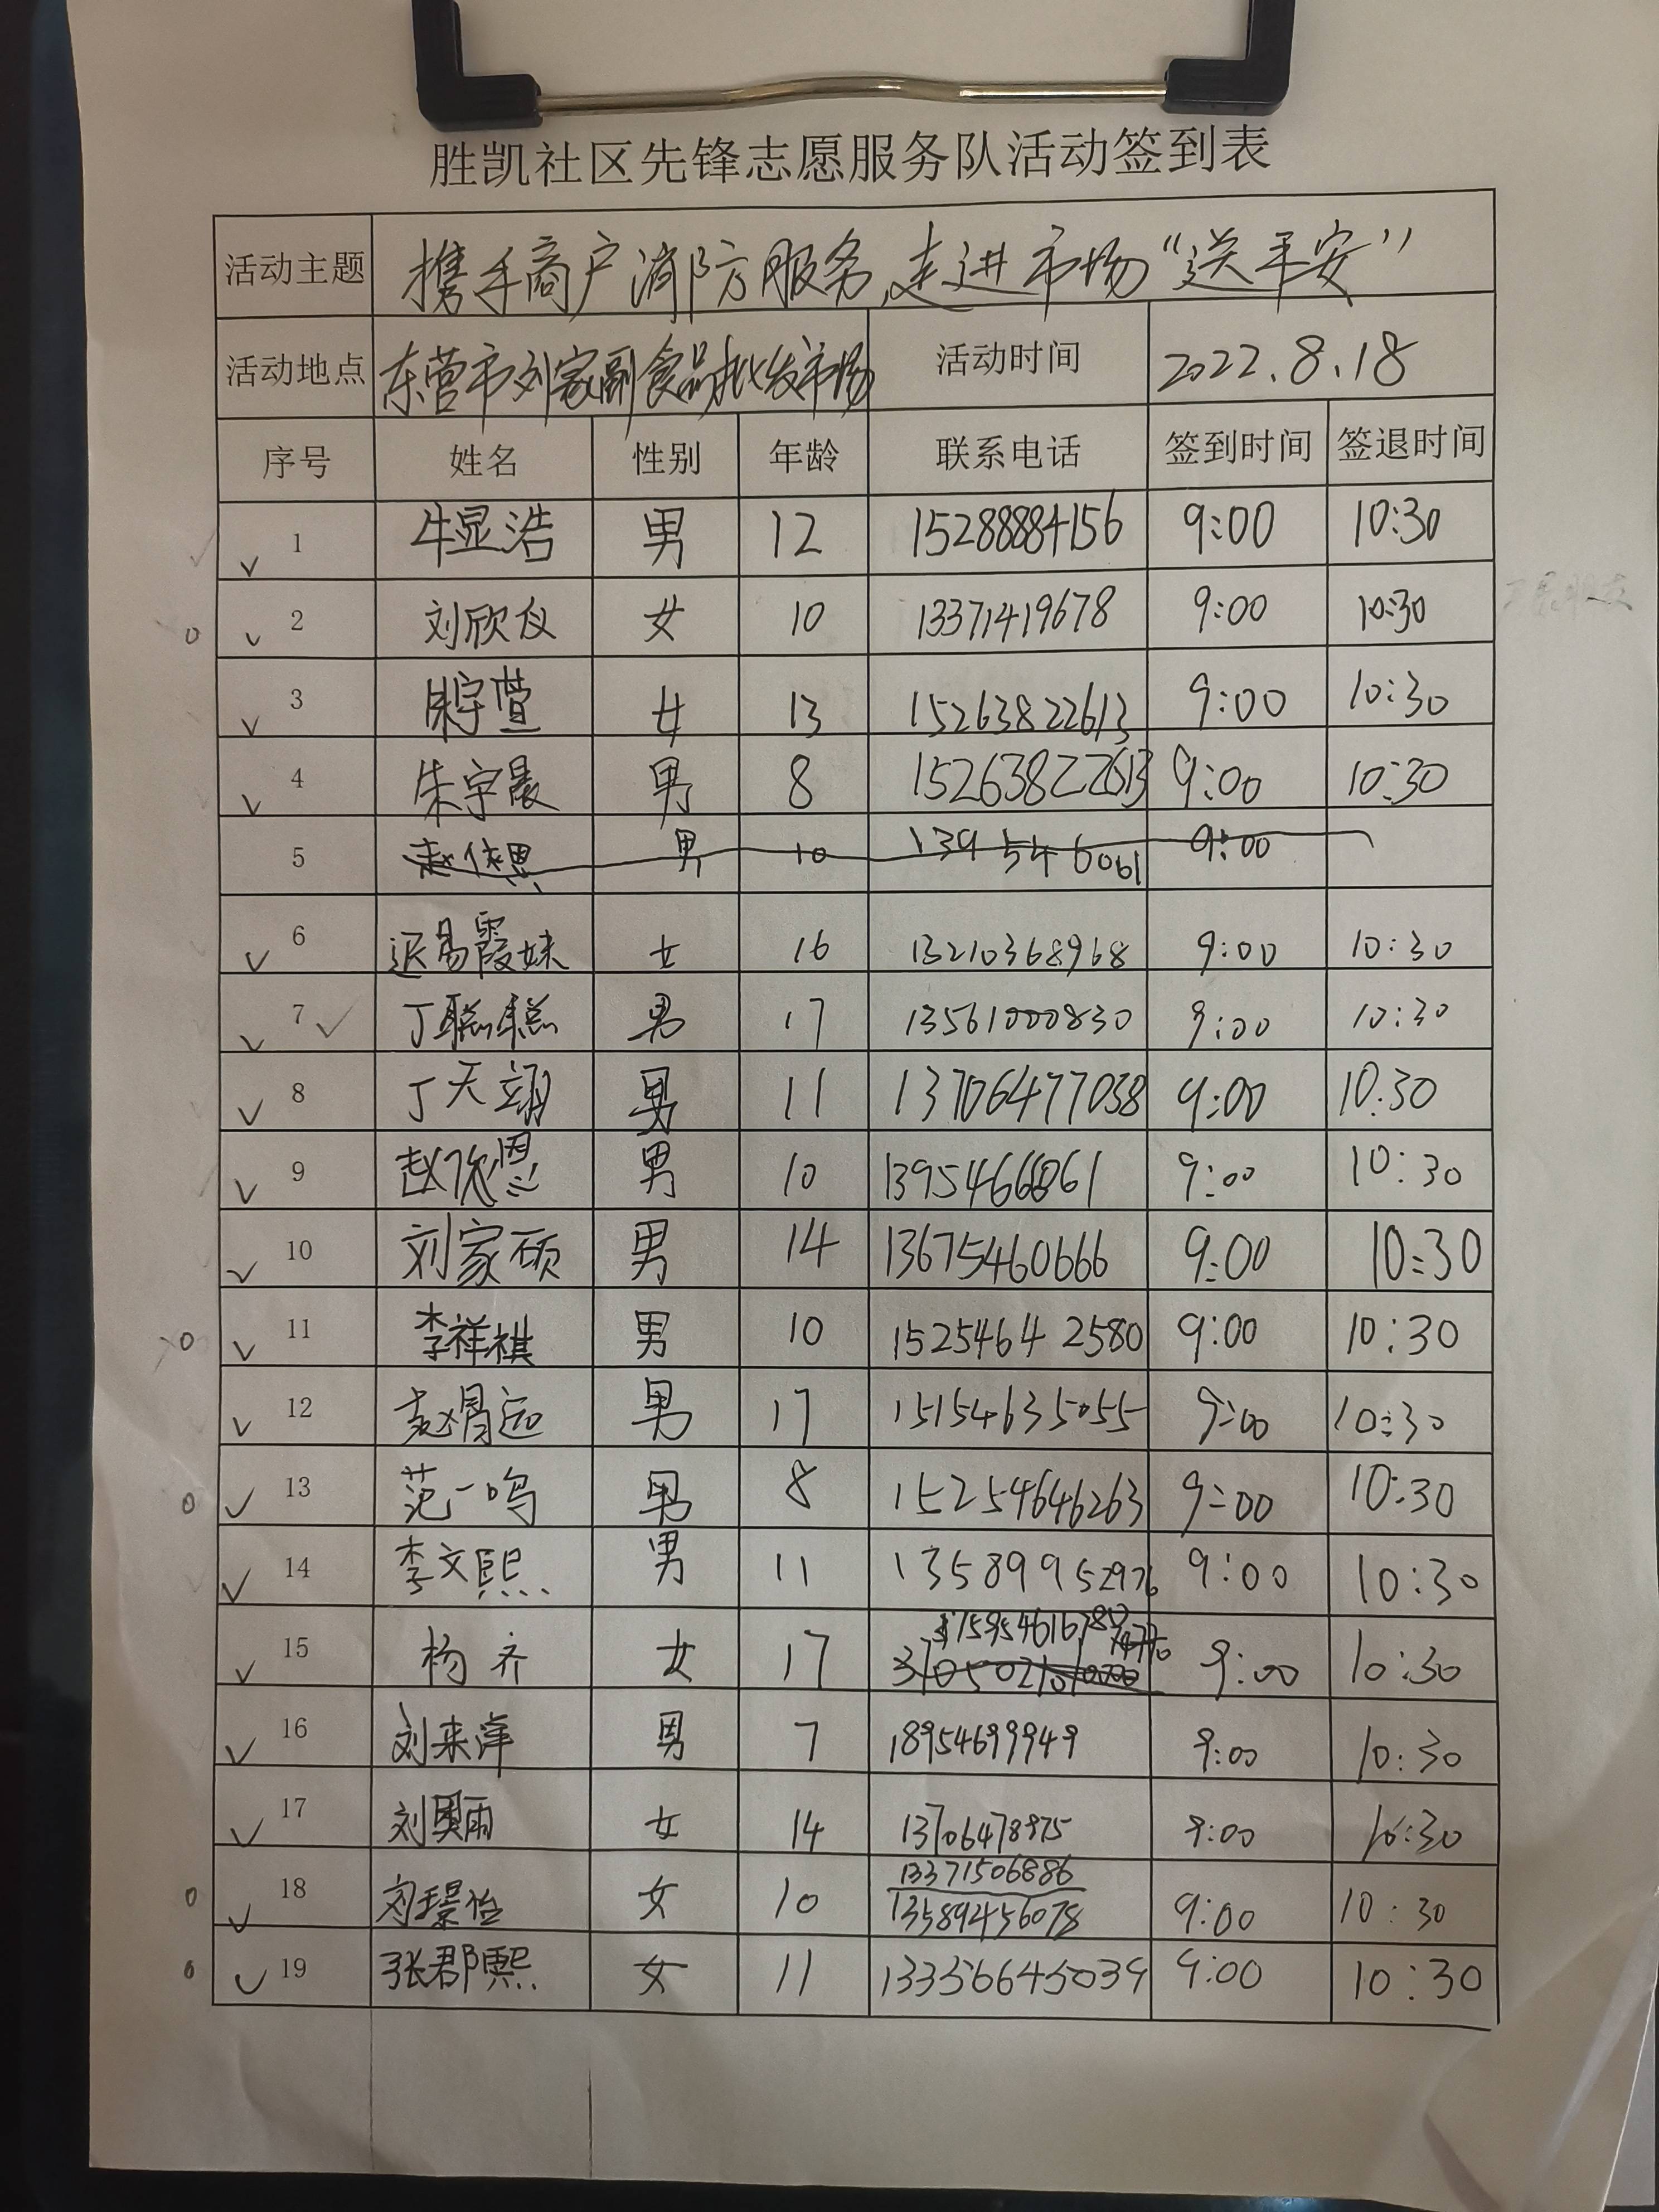 胜凯社区先锋志愿服务队活动签到表
活动主题 携手商户消防服务,走进市场“送平安”
活动地点 东营市刘家副食品批发市场 活动时间 2022.8.18
序号 姓名 性别 年龄 联系电话 签到时间 签退时间
1 牛显浩 男 12 15288884156 9:00 10:30
2 刘欣仪 女 10 13371419678 9:00 10:30
3 宇萱 女 13 15263822613 9:00 10:30
4 朱宇晨 男 8 15263822613 9:00 10:30
5 男 10 139 546061 9:00
6 迟易霞妹 女 16 13210368968 9:00 10:30
7 丁聪聪 男 17 13561000830 9:00 10:30
8 丁天翊 男 11 13706477038 9:00 10:30
9 赵依恩 男 10 9:00 10:30
10 刘家硕 男 14 13675460666 9:00 10:30
11 李祥祺 男 10 15254642580 9:00 10:30
12 远 男 17 15154635055 9:00 10:30
13 范一鸣 男 8 15254646263 9:00 10:30
14 李文熙 男 11 13589952976 9:00 10:30
15 杨齐 女 17 9:00 10:30
16 刘来洋 男 7 18954699949 9:00 10:30
17 刘 雨 女 14 13706478975 9:00 10:30
18 刘璟怡 女 10 13371506886 9:00 10:30
13589456078
19 张郡熙 女 11 13356645039 9:00 10:30